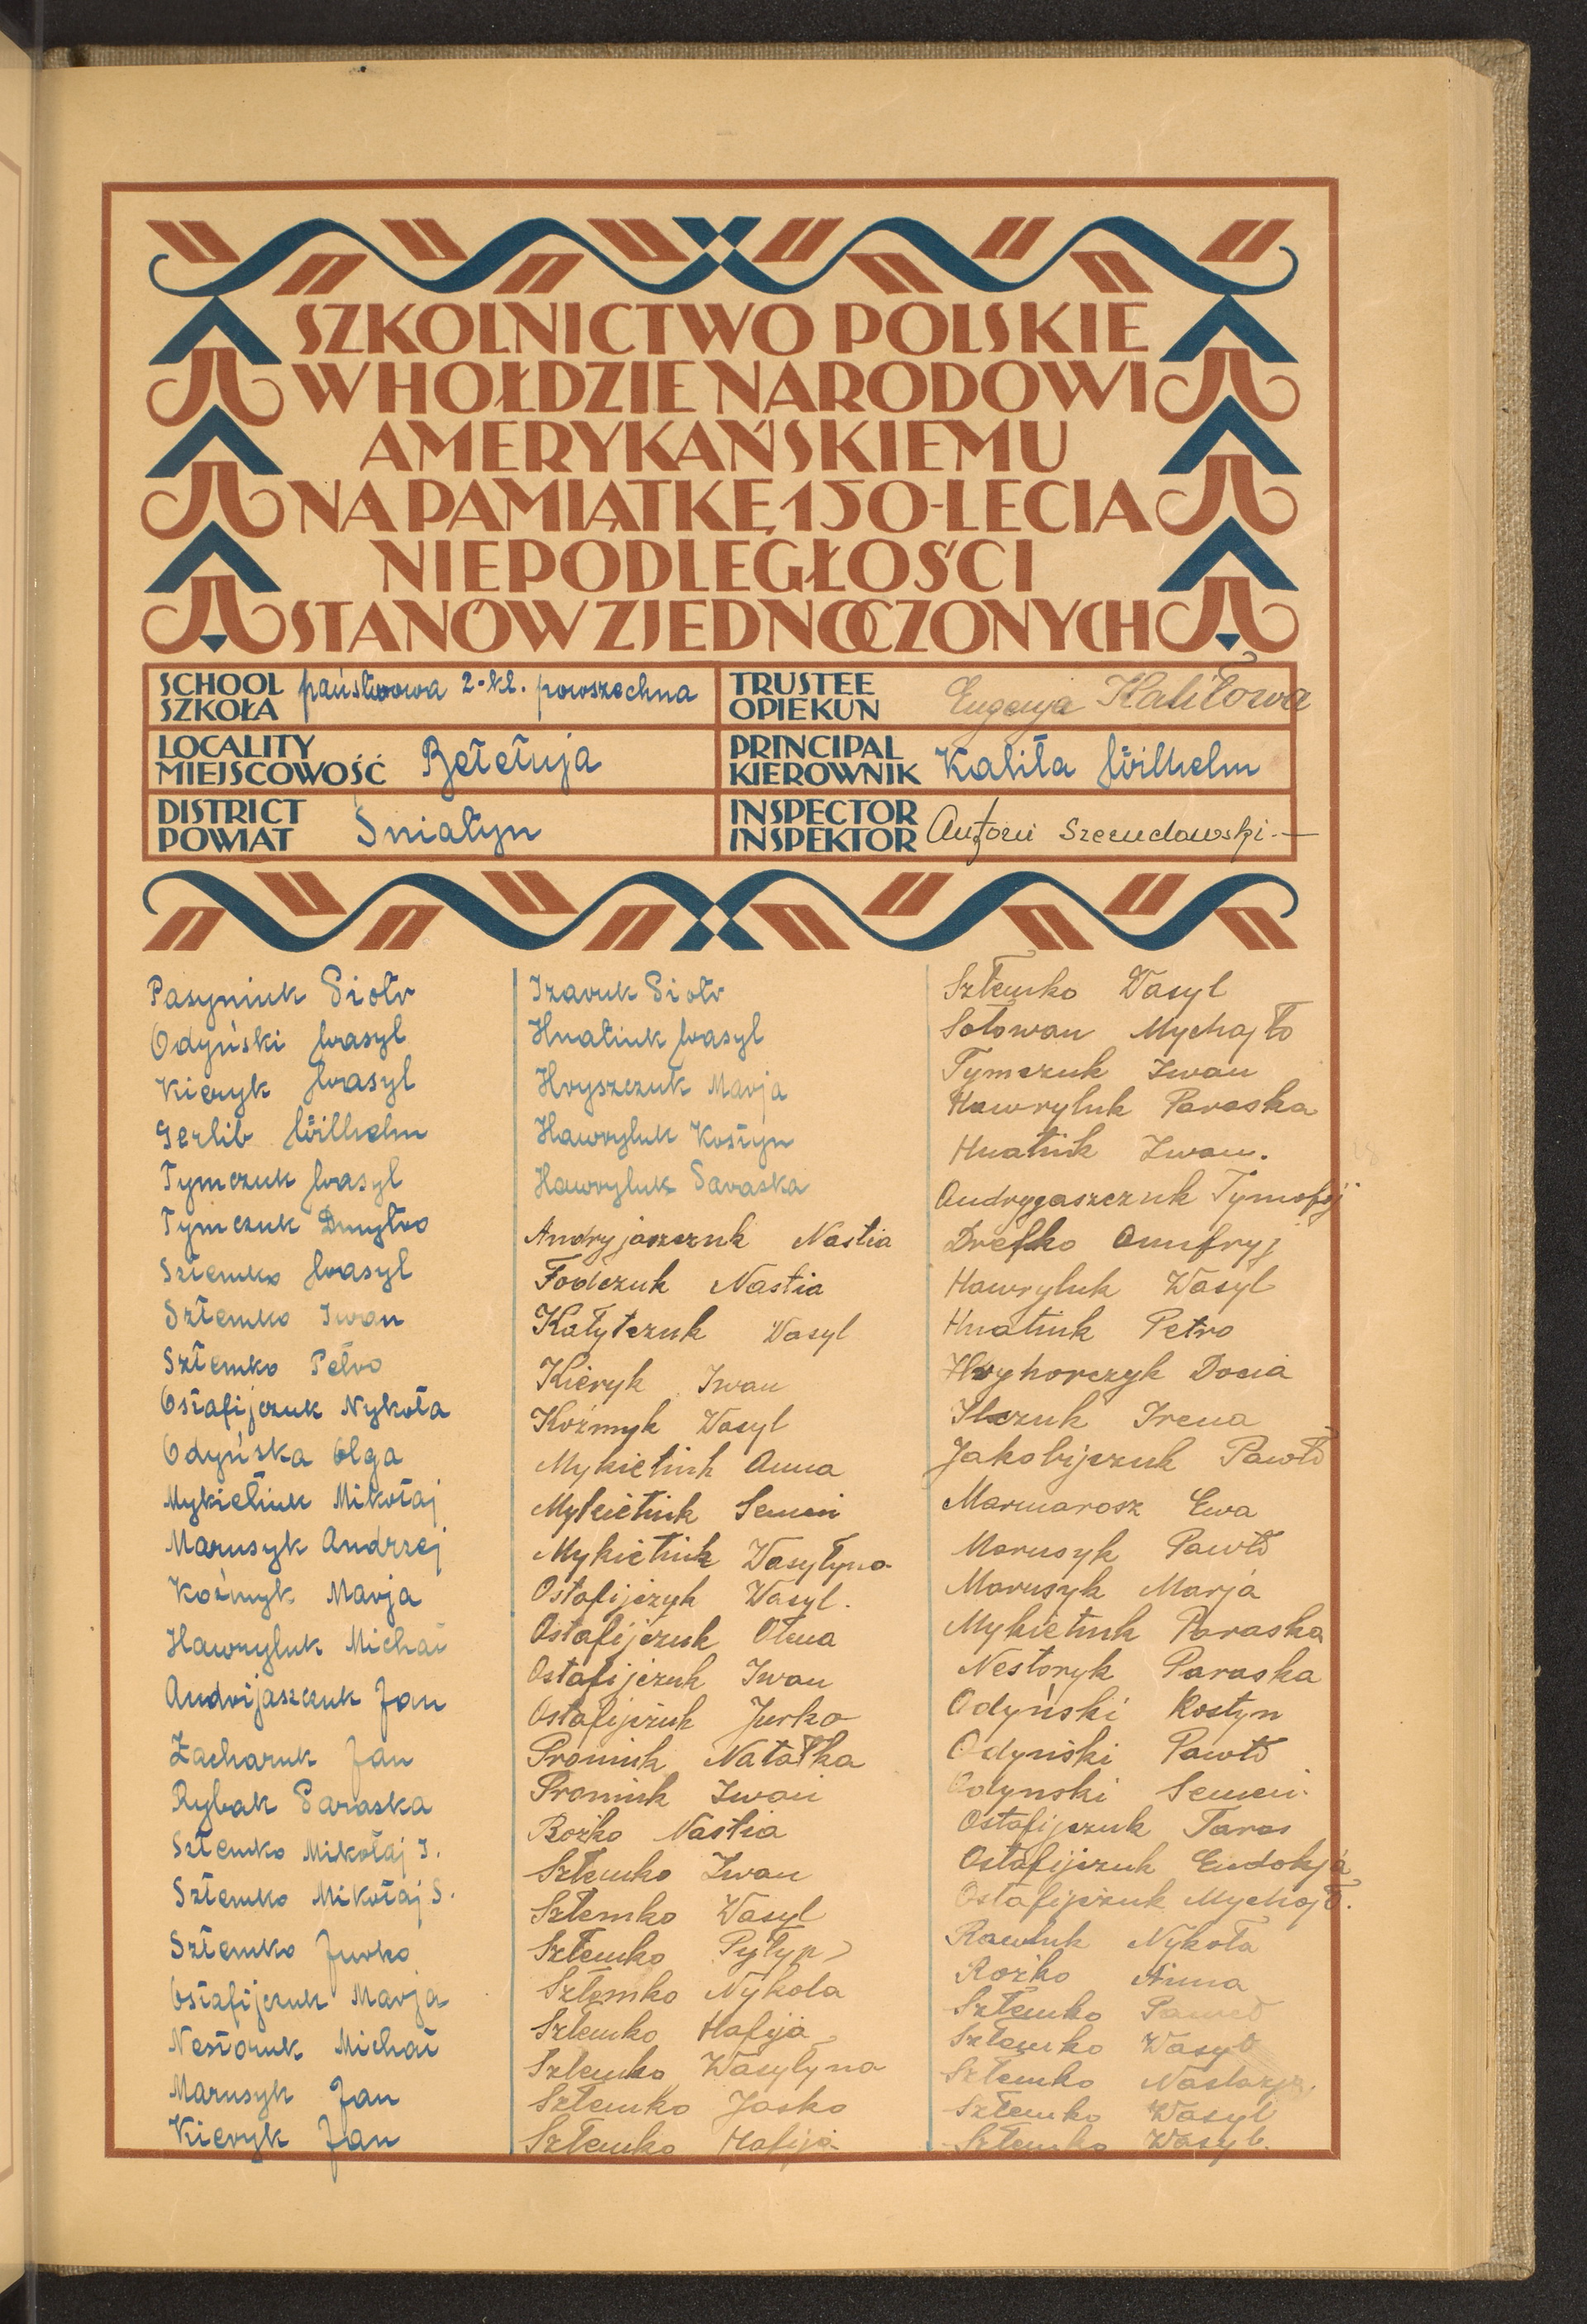 SZKOLNICTWO POLSKIE
W HOŁDZIE NARODOWI
AMERYKAŃSKIEMU
NA PAMIĄTKĘ 150-LECIA
NIEPODLEGŁOŚCI
STANÓW ZJEDNOCZONYCH
SCHOOL
SZKOŁA
państwowa 2-kl. powszechna
LOCALITY
MIEJSCOWOŚĆ
Bełełuja
DISTRICT
POWIAT
Śniatyn
TRUSTEE
OPIEKUN
Eugenja Kaliłowa
PRINCIPAL
KIEROWNIK
Kaliła Wilhelm
INSPECTOR
INSPEKTOR
Antoni
Pasyniuk Piotr
Odyński Wasyl
Kieryk Wasyl
Gerlib Wilhelm
Tymczuk Wasyl
Tymczuk Dmytro
Szłemko Wasyl
Szłemko Iwan
Szłemko Petro
Ostafijczuk Nykoła
Odyńska Olga
Mykietiuk Mikołaj
Marusyk Andrzej
Koźmyk Marja
Hawryluk Michał
Andrijaszczuk Jan
Zacharuk Jan
Rybak Paraska
Szłemko Mikołaj I.
Szłemko Mikołaj S.
Szłemko Jurko
Ostafijczuk Marja
Nestoruk Michał
Marusyk Jan
Kieryk Jan
Izaruk Piotr
Hnatiuk Wasyl
Hryszczuk Marja
Hawryluk Kostyn
Hawryluk Paraska
Andryjaszczuk Nastia
Fodczuk Nastia
Kałytczuk Wasyl
Kieryk Iwan
Koźmyk Wasyl
Mykietiuk Anna
Mykietiuk Semen
Mykietiuk Wasyłyna
Ostafijczyk Wasyl.
Ostafijczuk Ołena
Ostafijczuk Iwan
Ostafijczuk Jurko
Proniuk Natałka
Proniuk Iwan
Rożko Nastia
Szłemko Iwan
Szłemko Wasyl
Szłemko Pyłyp
Szłemko Nykola
Szłemko Hafija
Szlemko Wasyłyna
Szłemko Jasko
Szłemko Hafija
Szłemko Wasyl
Sołowan Mychajło
Tymczuk Iwan
Hawryluk Paraska
Hnatiuk Iwan.
Andrygaszczuk Tymofij
Drefko Onufryj
Hawryluk Wasyl
Hnatiuk Petro
Hryhorczyk Docia
Ilczuk Irena
Jakobijczuk Pawło
Marmarosz Ewa
Marusyk Pawło
Marusyk Marja
Mykietiuk Paraska
Nestoryk Paraska
Odyński Kostyn
Odyński Pawło
Odynski Semen.
Ostafijczuk Taras
Ostafijczuk Eudokja
Ostafijczuk Mychajł.
Rawluk Nykoła
Rożko Anna
Szłemko Paweł
Szłemko Wasyl
Szłemko
Szłemko Wasyl
Szłemko Wasyl.